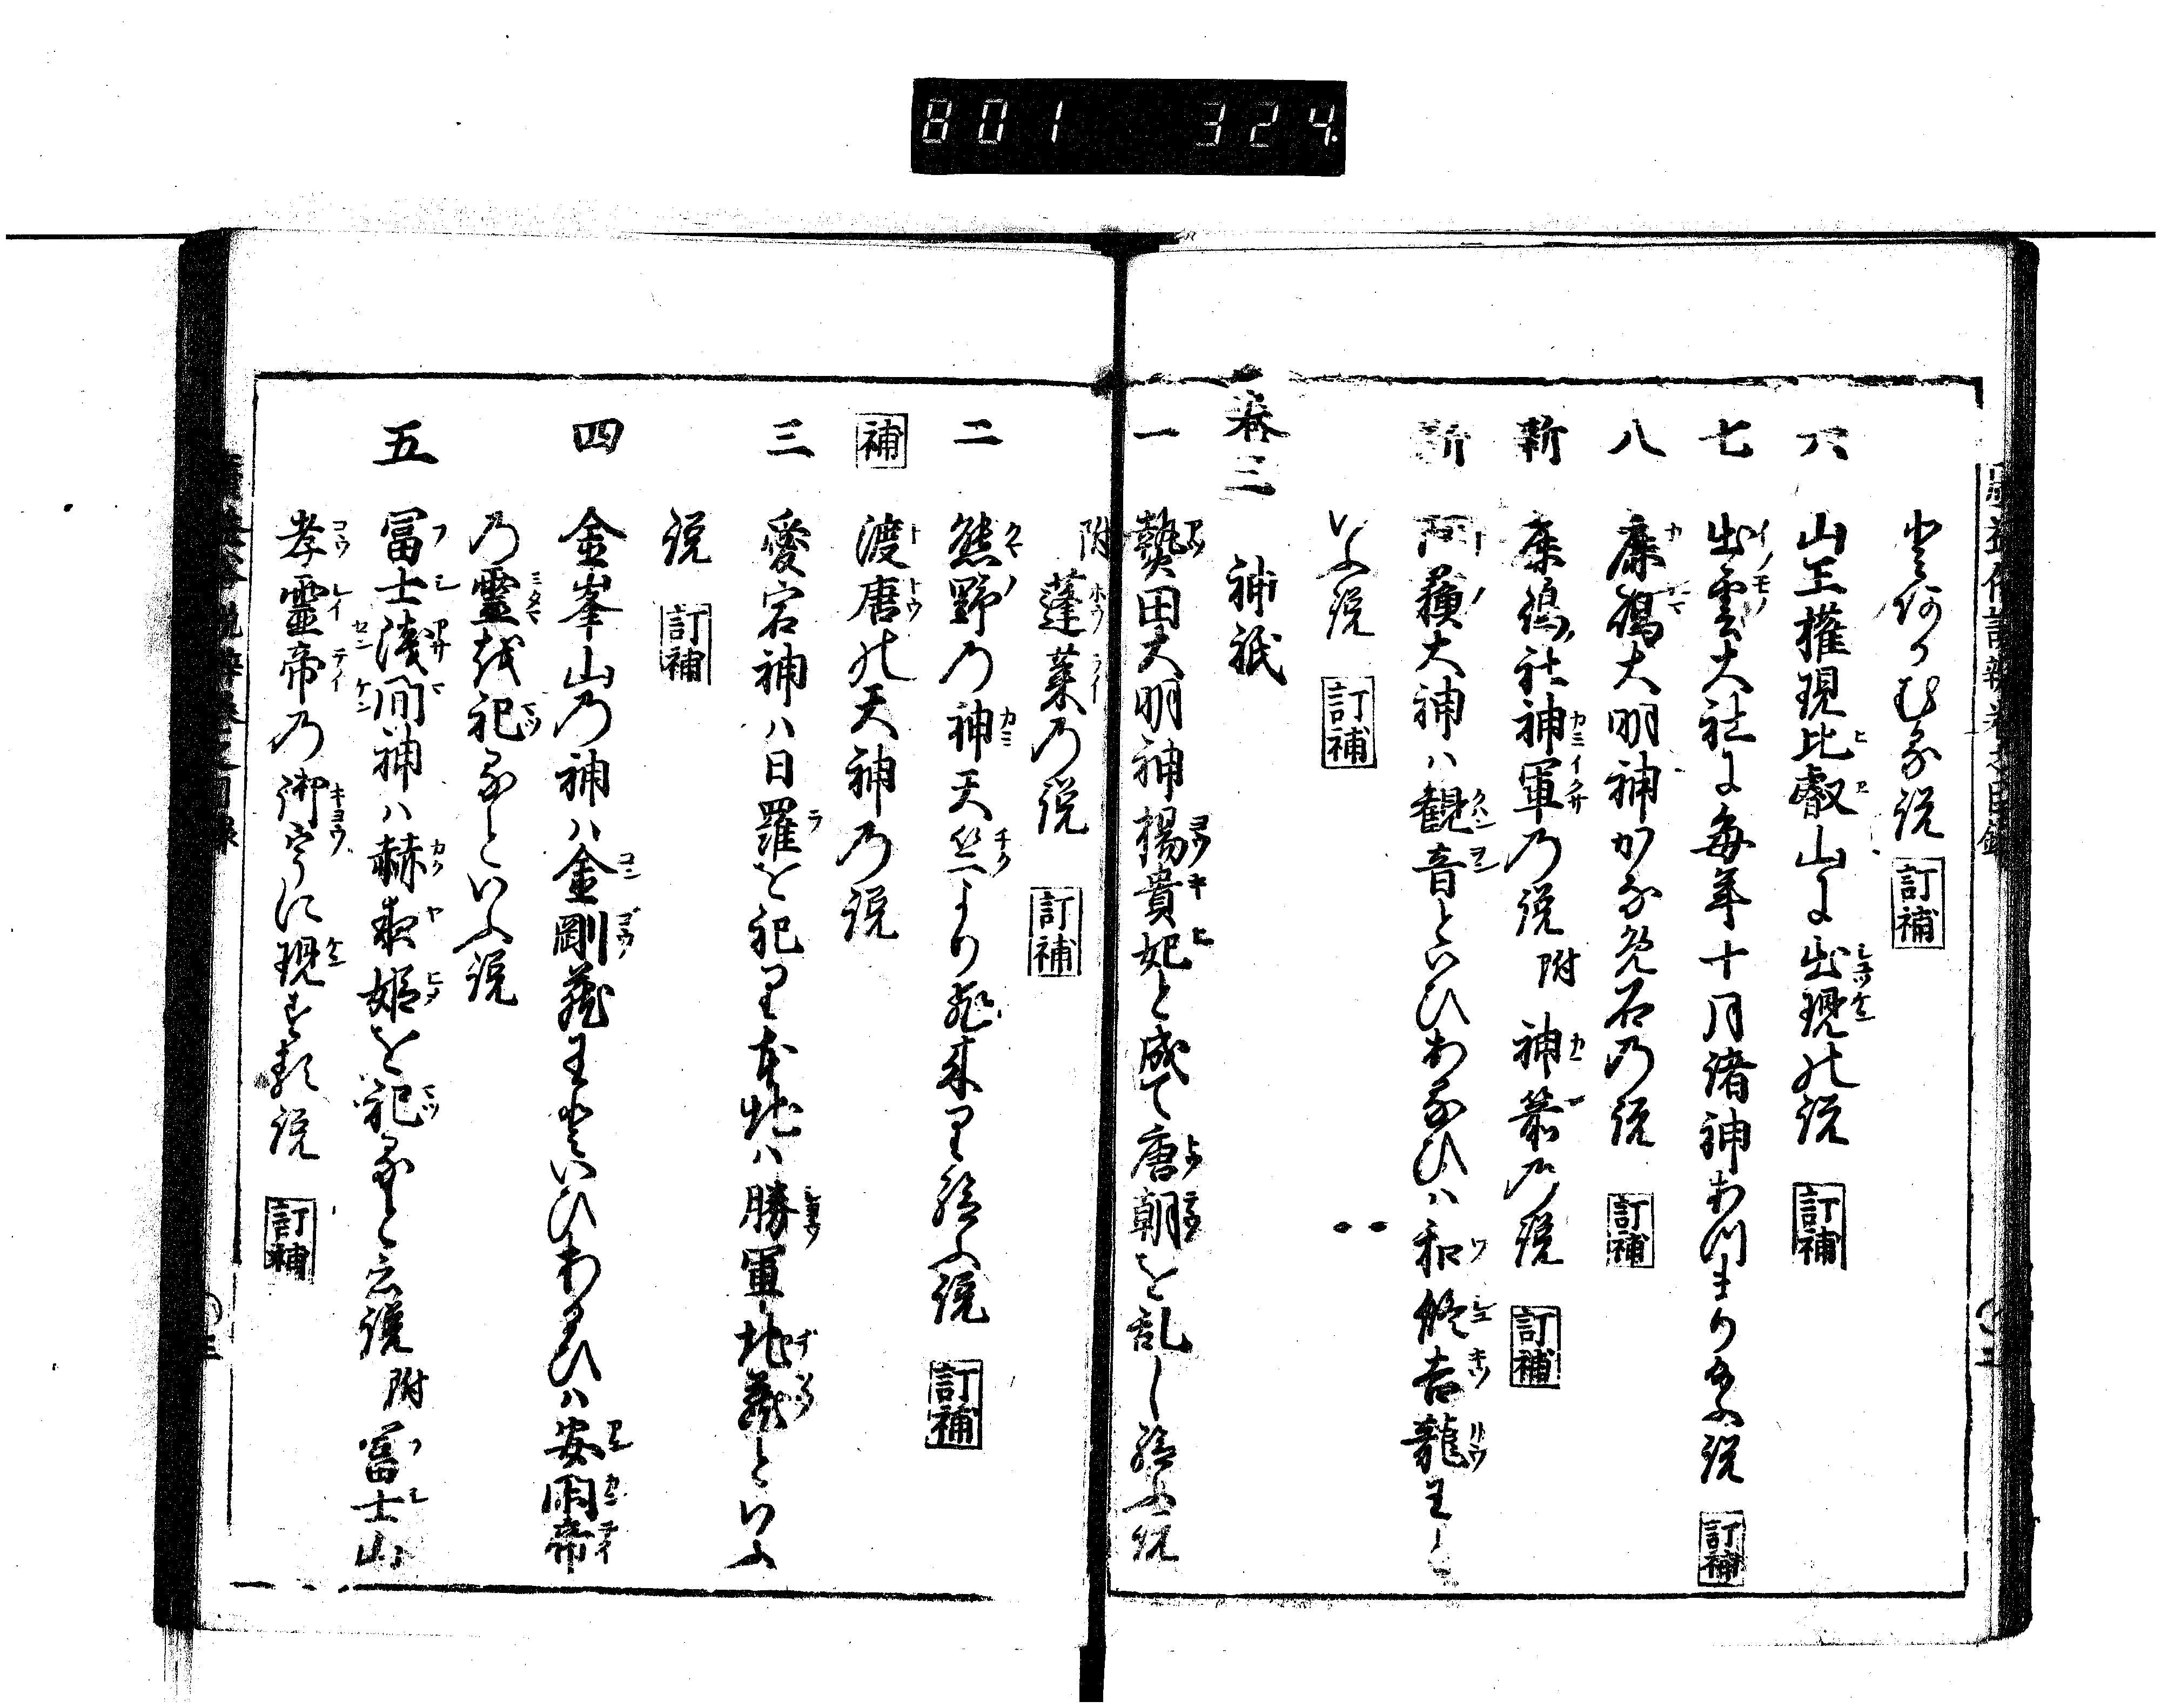 801 324
廣益俗説辨巻之目録
説 訂補
六 山王権現比叡山に出現の説 訂補
七 出雲大社に毎年十月諸神あつまり給ふ説 訂補
八 鹿嶋大明神かなめ石の説 訂補
新 鹿嶋社神軍の説 附 神箭の説 訂補
新 阿蘓大神ハ観音といひあるひハ和修吉龍王と
いふ説 訂補
巻三 神祇
一 熱田大明神楊貴妃と成て唐朝を乱し給ふ説
附 蓬莱の説 訂補
二 熊野の神天竺より飛来り給ふ説 訂補
補 渡唐の天神の説
三 愛宕神ハ日羅を祀り本地ハ勝軍地蔵といふ
説 訂補
四 金峯山の神ハ金剛蔵王といひあるひハ安閑帝
の霊を祀るといふ説
五 冨士浅間神ハ赫夜姫を祀ると云説 附 冨士山
孝霊帝の御宇に現ずる説 訂補
三